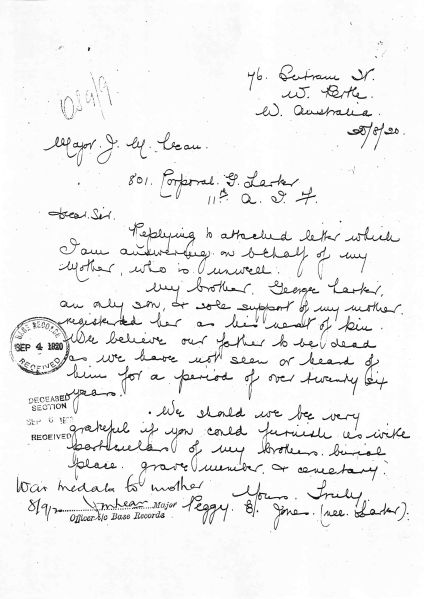 76. Outram St
W. Perth.
W. Australia.
25/8/20.
Major J. M. Lean.
801. Corporal. G. Larker
11th A. I. F.
Dear Sir.
Replying to attached letter which
I am answering on behalf of my
Mother, who is unwell.
My brother. George Larker,
an only son, & sole support of my mother.
registered her as his next of kin.
We believe our father to be dead
as we have not seen or heard of
him for a period of over twenty six
years.
We should we be very
grateful if you could furnish us with
particulars of my brothers burial
place. grave number. & cemetary.
Yours. Truly
Peggy E. Jones. (nee Larker).
BASE RECORDS
SEP 4 1920
RECEIVED
DECEASED
SECTION
SEP
RECEIVED
War medals to mother
8/9/ JMLean Major
Officer i/c Base Records